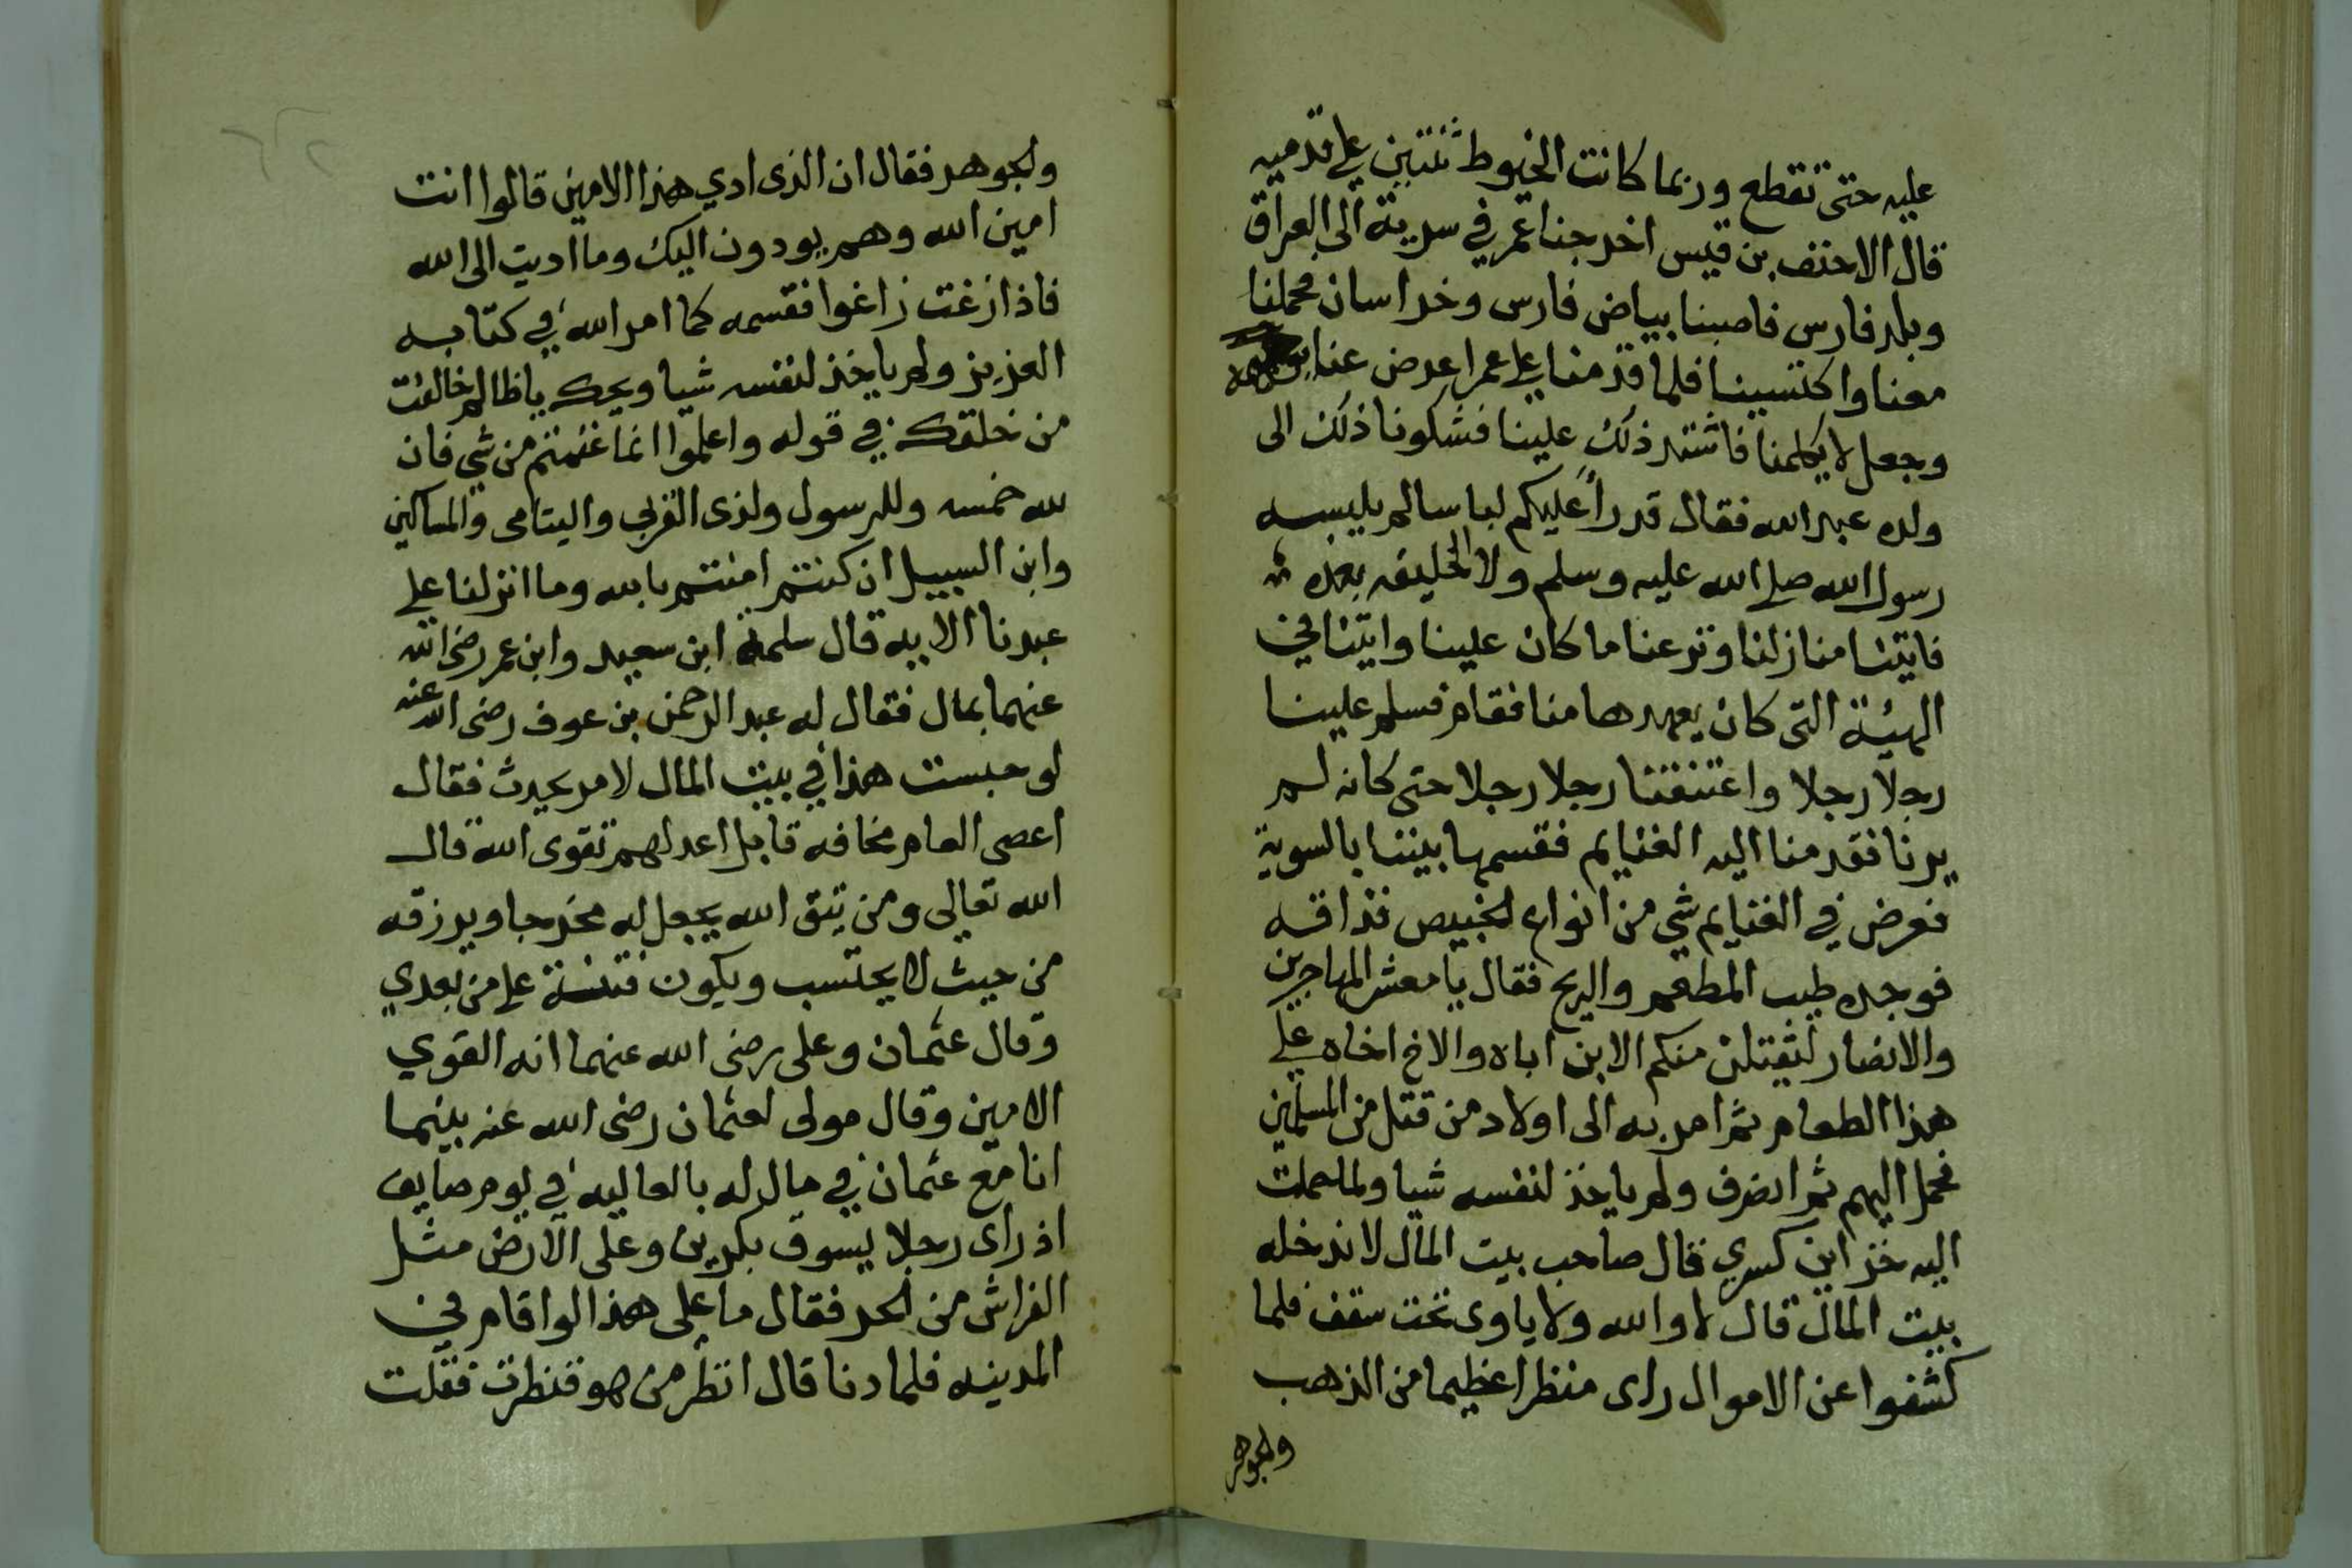 عليه حتى تقطع وربما كانت الخيوط ثنتين على قدميه
قال الاحنف بن قيس اخرجنا عمر في سرية الى العراق
وبلد فارس فاصبنا بياض فارس وخراسان فحملنا
معنا واكتسينا فلما قدمنا على عمر اعرض عنا بوجهه
وجعل لا يكلمنا فاشتد ذلك علينا فشكونا ذلك الى
ولده عبد الله فقال قد راَ عليكم لباسا لم يلبسه
رسول الله صلى الله عليه وسلم ولا الخليفه بعده
فاتينا منازلنا ونزعنا ما كان علينا واتينا في
الهيئة التى كان يعهدها منا فقام فسلم علينا
رجلا رجلا واعتنقنا رجلا رجلا حتى كانه لم
يرنا فقدمنا اليه الغنايم فقسمها بيننا بالسوية
فعرض في الغنايم شي من انواع الخبيص فذاقه
فوجده طيب المطعم والريح فقال يا معشر المهاجرين
والانصار ليقتلن منكم الابن اباه والاخ اخاه على
هذا الطعام ثم امر به الى اولاد من قتل من المسلمين
فحمل اليهم ثم انصرف ولم ياخذ لنفسه شيا ولما حملت
اليه خزاين كسري قال صاحب بيت المال لاندخله
بيت المال قال لا والله ولا ياوى تحت سقف فلما
كشفوا عن الاموال راى منظرا عظيما من الذهب
ولجوهر
ولجوهر فقال ان الذى ادي هذا الامين قالوا انت
امين الله وهم يودون اليك وما اديت الى الله
فاذا زغت زاغوا فقسمه كما امر الله في كتابه
العزيز ولم ياخذ لنفسه شيا ويحك يا ظالم خالفت
من خلقك في قوله واعلموا انما غنمتم من شي فان
لله خمسه وللرسول ولذى القربى واليتامى والمساكين
وابن السبيل ان كنتم امنتم بالله وما انزلنا على
عبدنا الايه قال سلمة ابن سعيد وابن عمر رضى الله
عنهما بمال فقال له عبد الرحمن بن عوف رضى الله عنه
لو حبست هذا في بيت المال لامر يحدث فقال
اعصى العام مخافه قابل اعد لهم تقوى الله قال
الله تعالى ومن يتق الله يجعل له مخرجا ويرزقه
من حيث لا يحتسب ويكون فتنسة على من بعدي
وقال عثمان وعلى رضى الله عنهما انه القوي
الامين وقال مولى لعثمان رضى الله عنه بينما
انا مع عثمان في مال له بالعاليه في يوم صايف
اذ راى رجلا يسوق بكرين وعلى الارض مثل
الفراش من الحر فقال ما على هذا لو اقام في
المدينه فلما دنا قال انظر من هو فنظرت فقلت